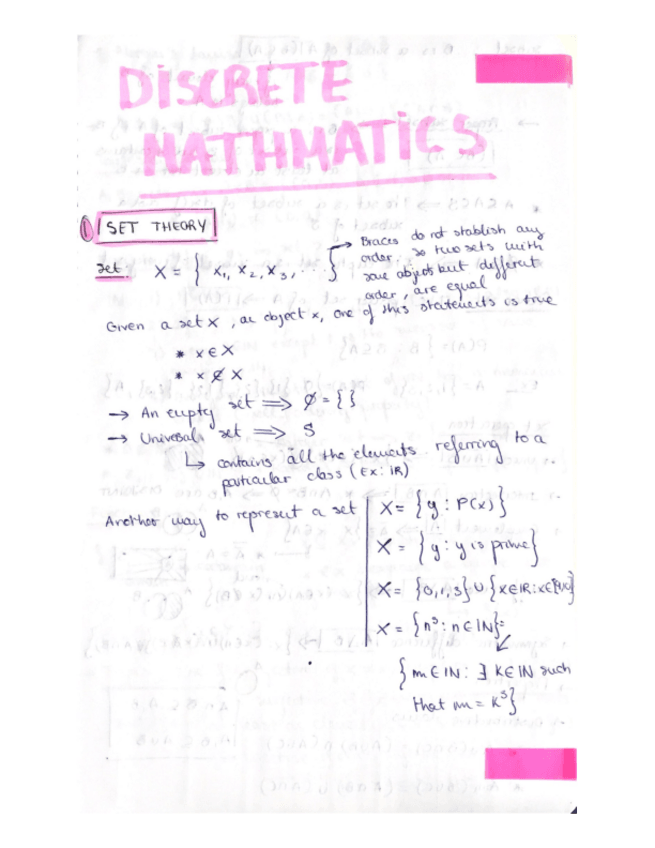 DISCRETE
MATHMATICS
1 SET THEORY
Set: X = { x₁, x₂, x₃, ... }
→ Braces do not stablish any
order so two sets with
same objects but different
order, are equal
Given a set X, an object x, one of this statements is true
* x ∈ X
* x ∉ X
→ An empty set ⟹ ∅ = { }
→ Universal set ⟹ S
↳ contains all the elements referring to a
particular class (Ex: ℝ)
Another way to represent a set
X = { y : P(x) }
X = { y : y is prime }
X = {0, 1, 3} ∪ { x ∈ ℝ : x ∈
X = { n³ : n ∈ ℕ } =
{ m ∈ ℕ : ∃ k ∈ ℕ such
that m = k³ }